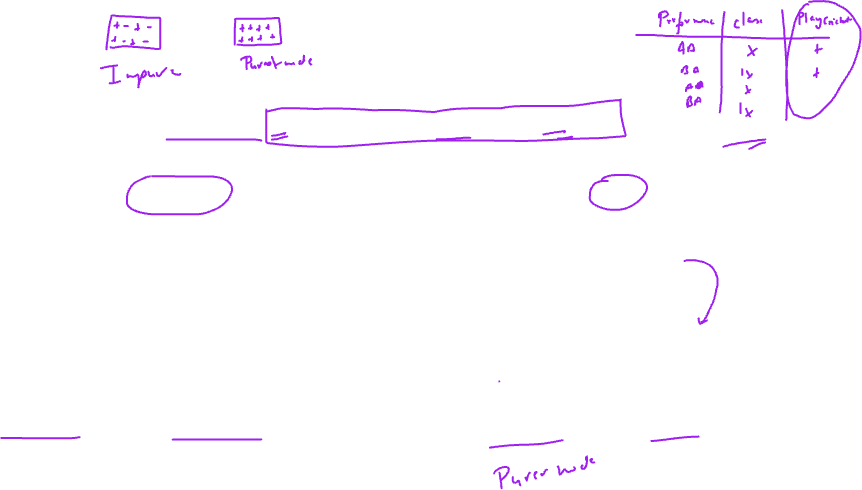 + - + -
+ - + -
Impure
+ + + +
+ + + +
Purest node
Performance Class Play Cricket
AA X +
BA IX +
AA X
BA IX
Purer node